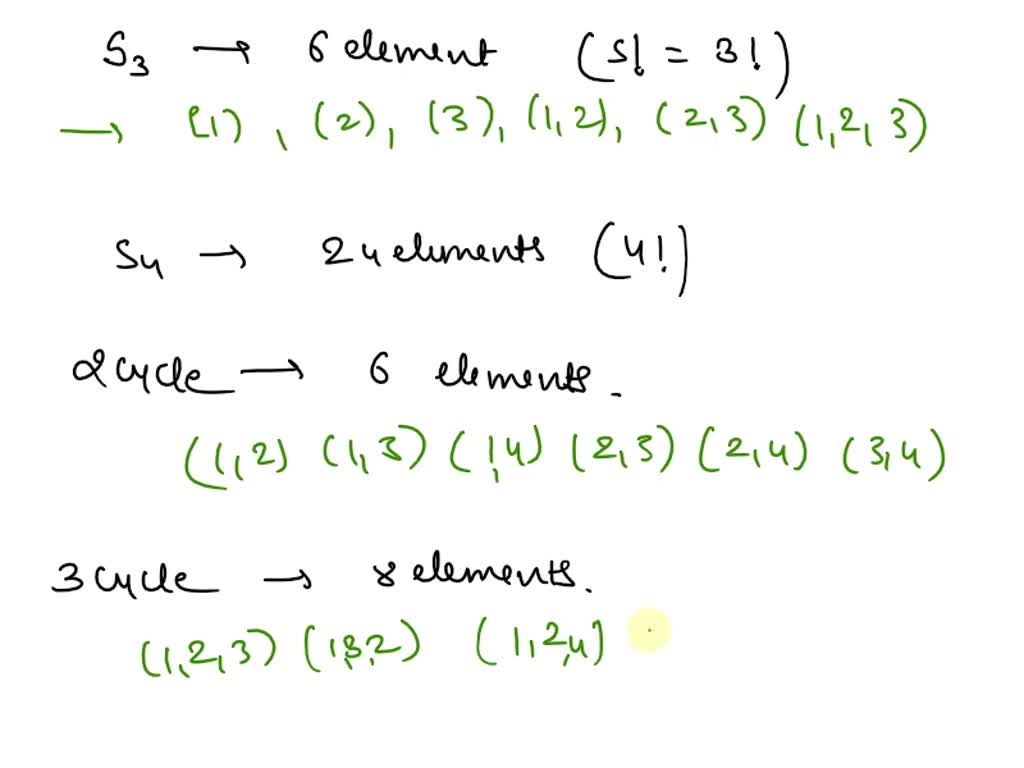 S3 → 6 element (S! = 3!)
→ (1), (2), (3), (1,2), (2,3) (1,2,3)
S4 → 24 elements (4!)
2 cycle → 6 elements.
((1,2) (1,3) (1,4) (2,3) (2,4) (3,4)
3 cycle → 8 elements.
(1,2,3) (1,3,2) (1,2,4)